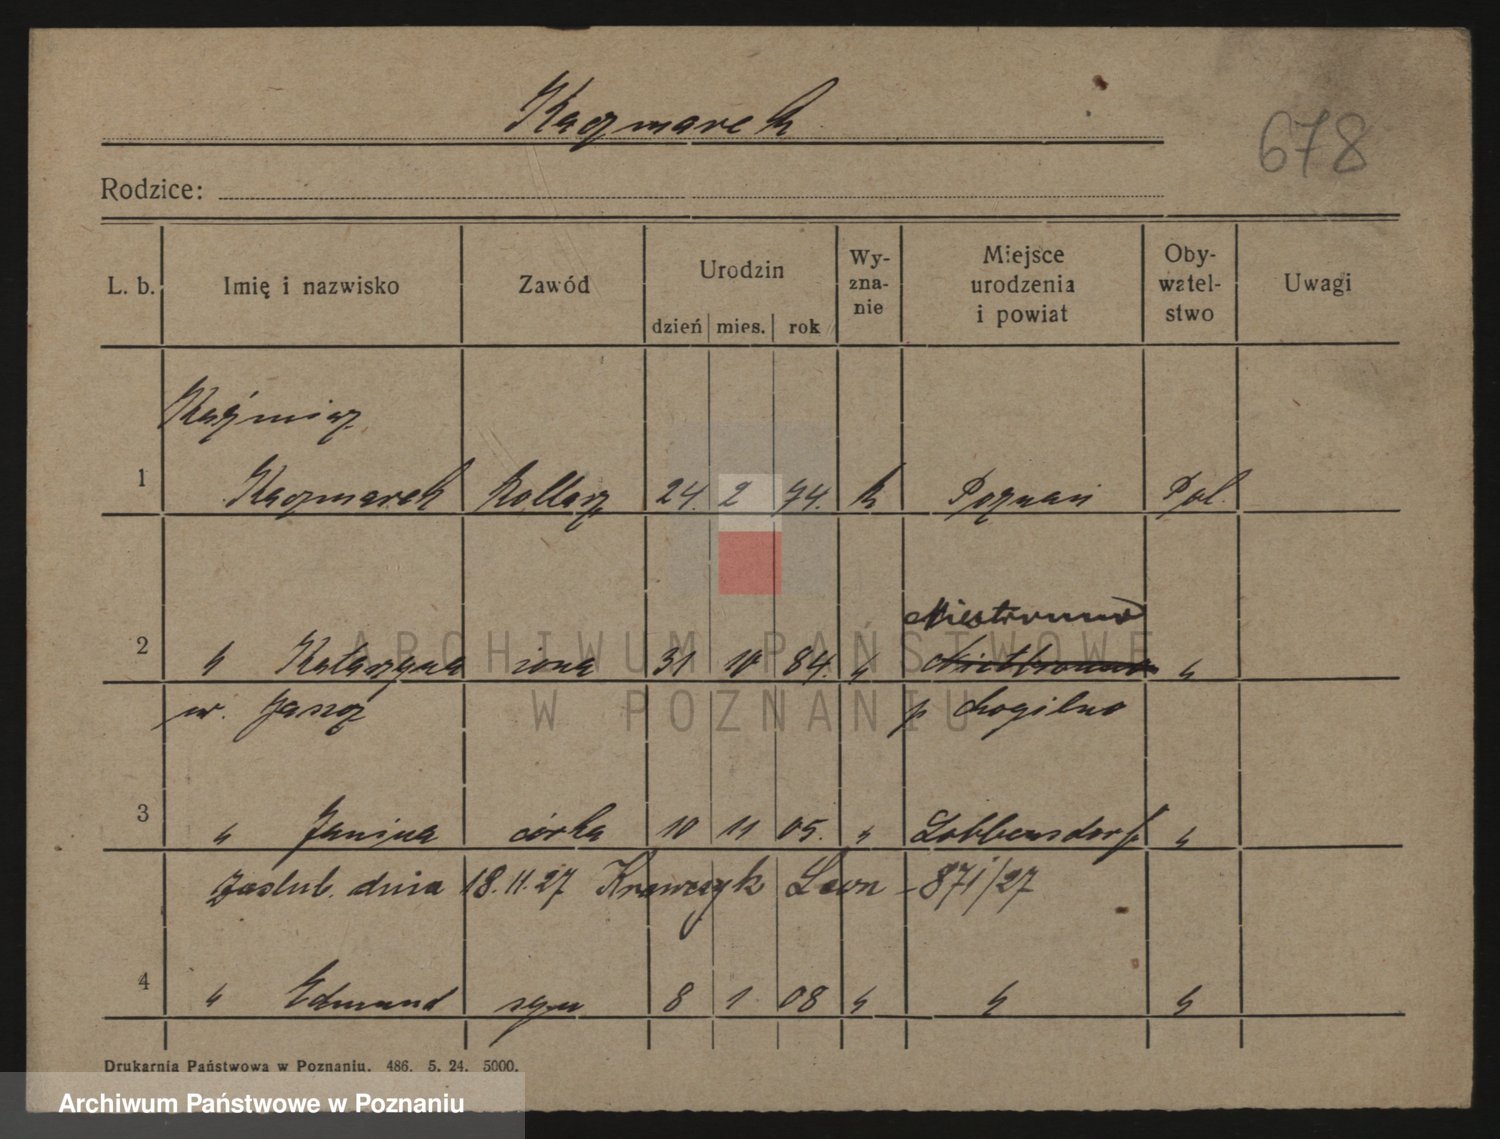 Kaczmarek
678
Rodzice:
L. b. Imię i nazwisko Zawód Urodzin dzień mies. rok Wy-zna-nie Miejsce urodzenia i powiat Oby-watel-stwo Uwagi
Kaźmierz
1 Kaczmarek 24. 2 74. k Poznań Pol.
2 " Katarzyna żona 31 10 84. " "
p Mogilno
3 " Janina córka 10 11 05. " Lobbensdorf "
zaślub. dnia 18.11.27 Krawczyk Leon - 871/27
4 " Edmund syn 8 1 08 " " "
Drukarnia Państwowa w Poznaniu. 486. 5. 24. 5000.
ARCHIWUM PAŃSTWOWE
W POZNANIU
Archiwum Państwowe w Poznaniu